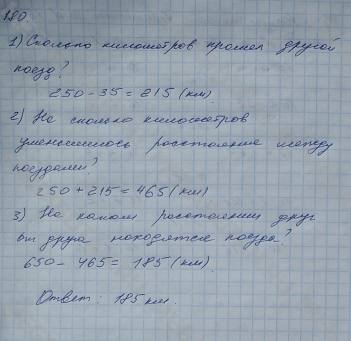 180.
1) Сколько километров прошел другой
поезд?
250 - 35 = 215 (км)
2) На сколько километров
уменьшилось расстояние между
поездами?
250 + 215 = 465 (км)
3) На каком расстоянии друг
от друга находятся поезда?
650 - 465 = 185 (км)
Ответ: 185 км.